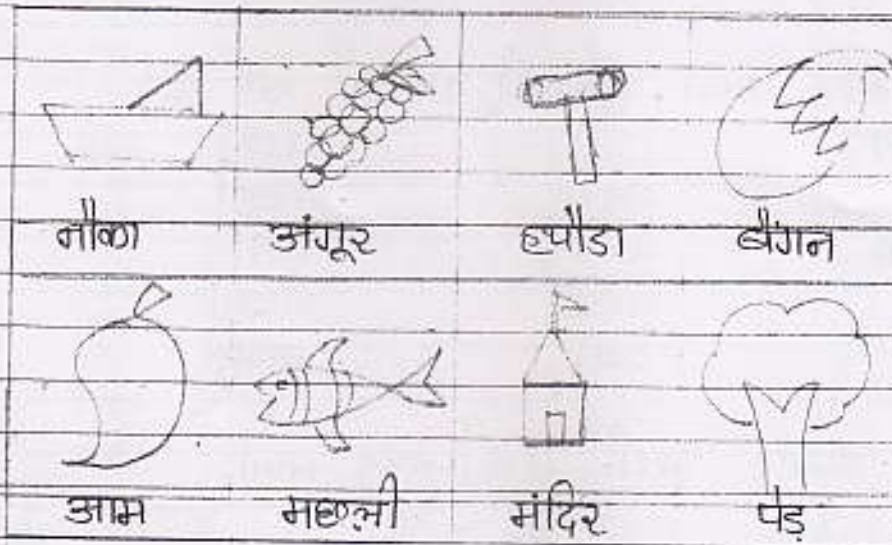 नौका अंगूर हपौडा बैंगन
आम मछली मंदिर पेड़